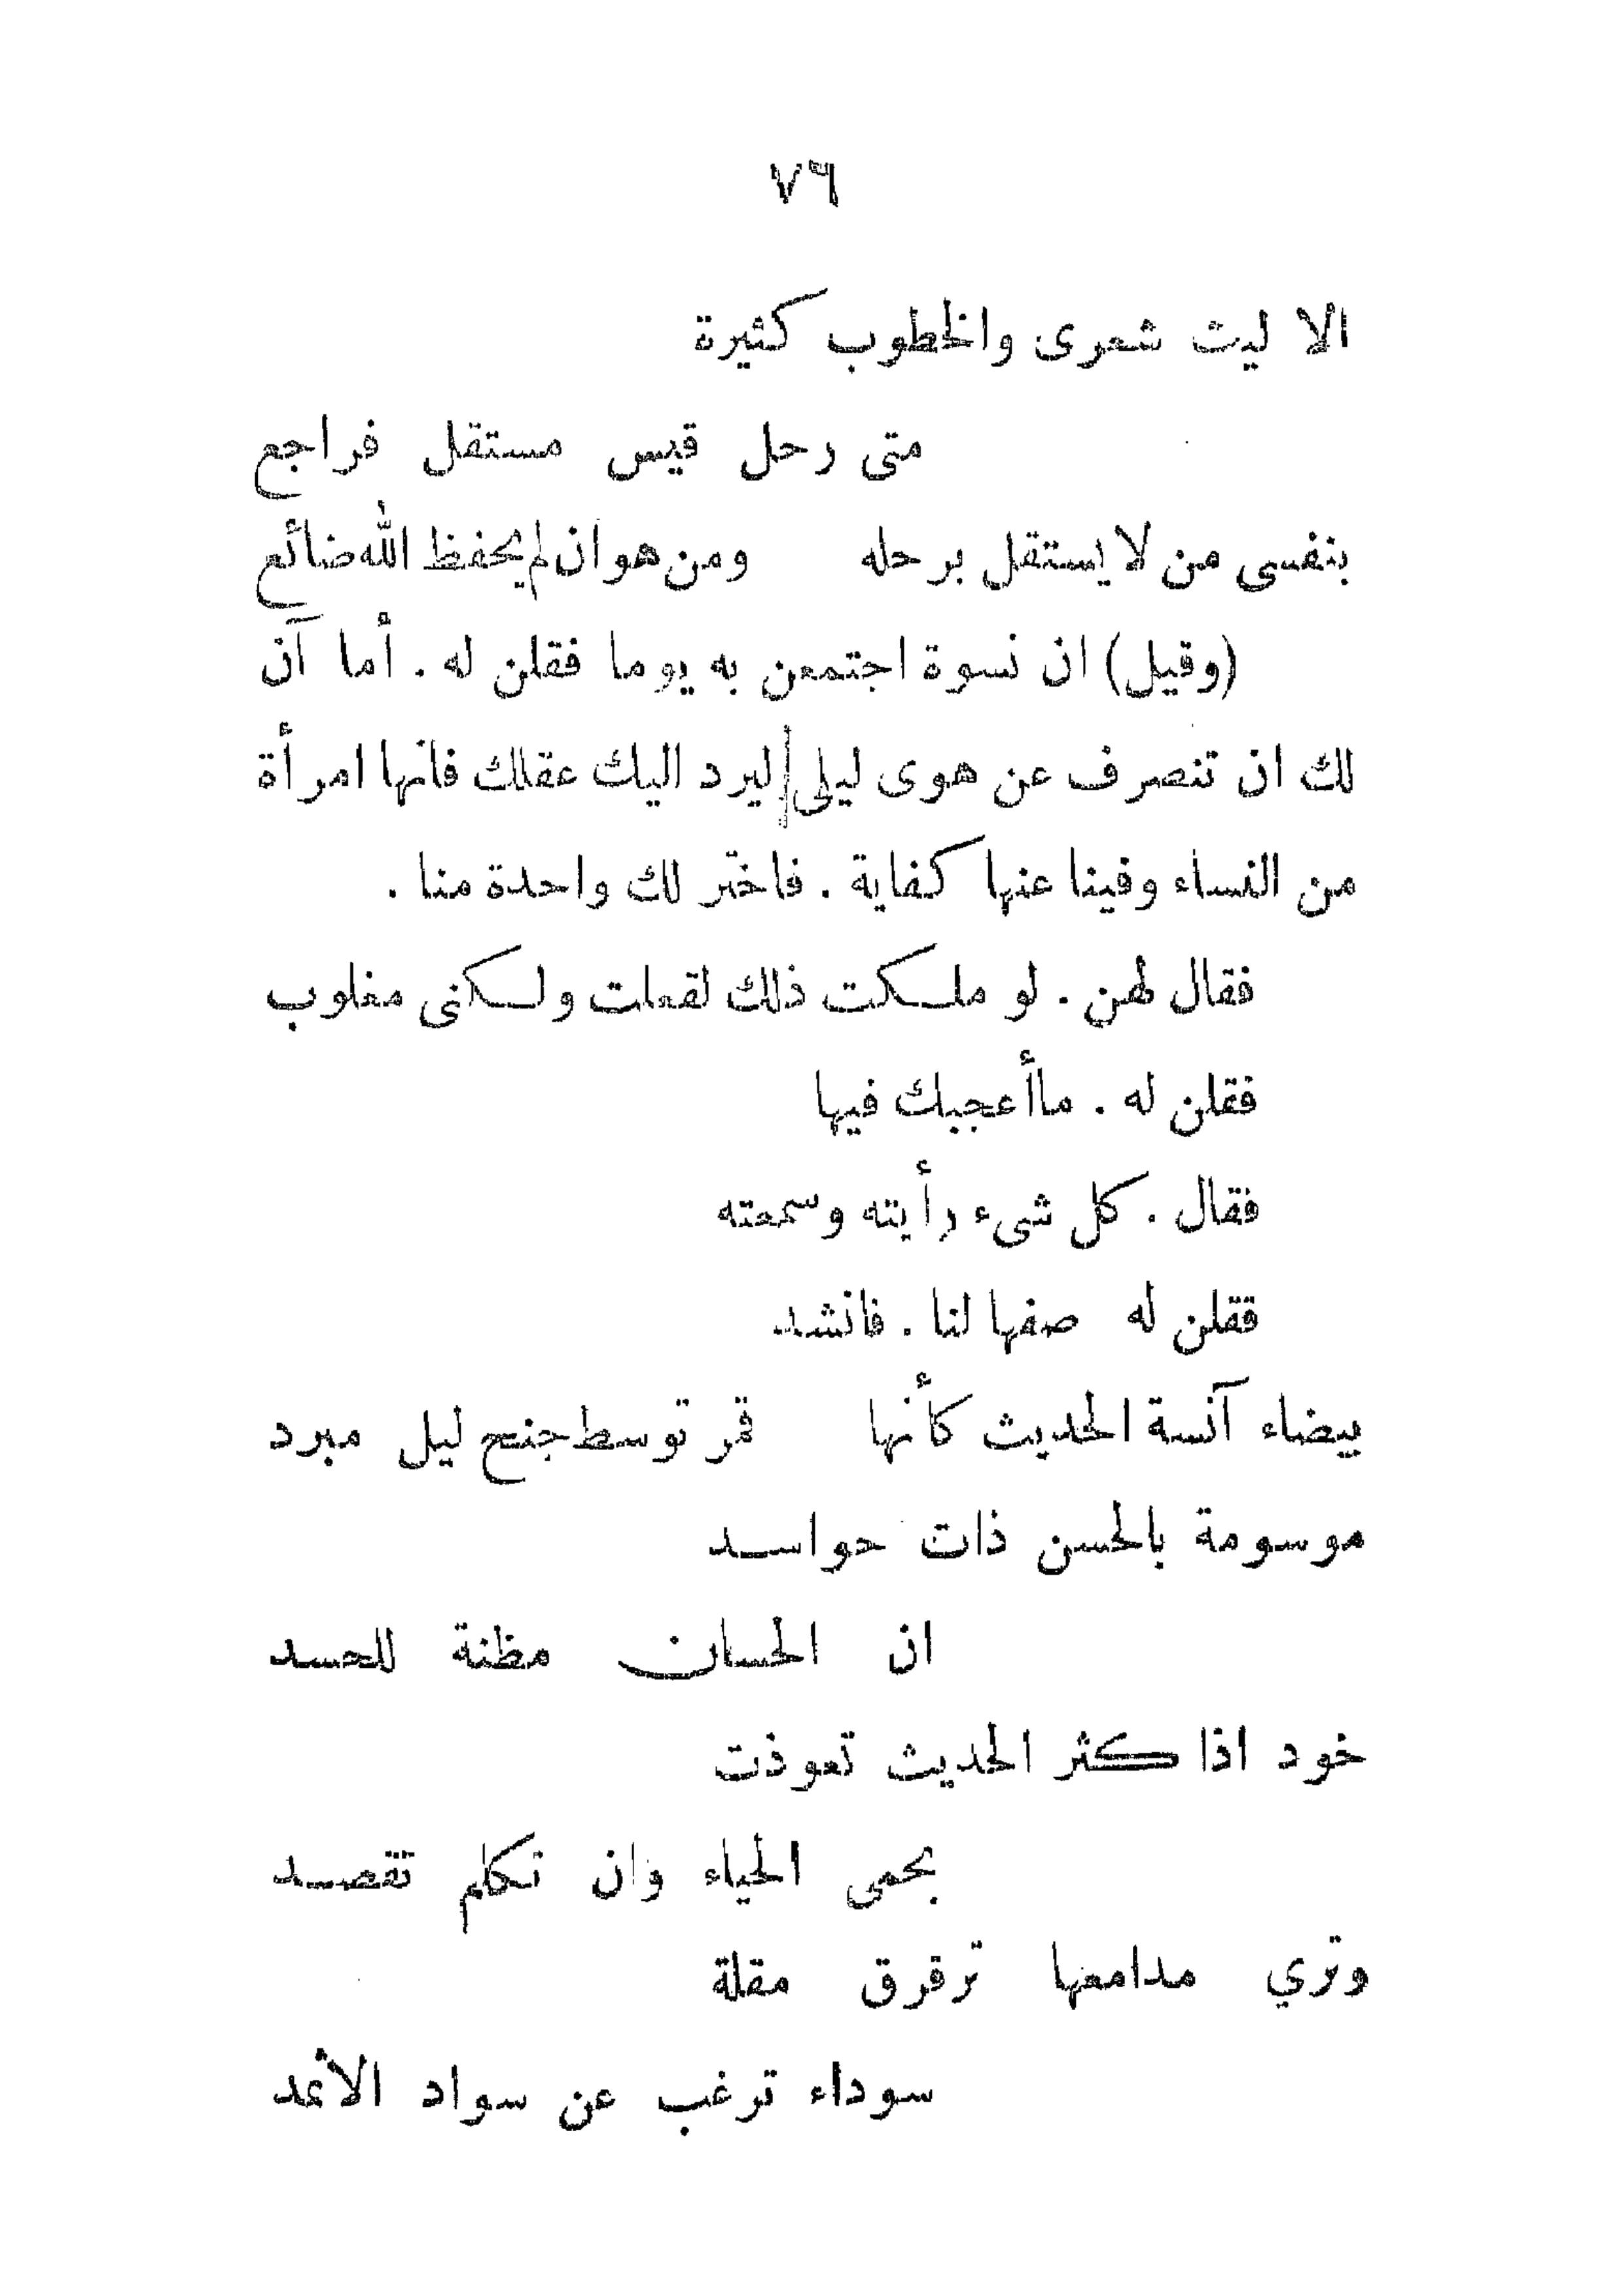 ٧٦
الا ليت شعرى والخطوب كثيرة
متى رحل قيس مستقل فراجع
بنفسى من لا يستقل برحله ومن هو ان لم يحفظ الله ضائع
(وقيل) ان نسوة اجتمعن به يوما فقلن له . أما آن
لك ان تنصرف عن هوى ليلى ليرد اليك عقلك فانها امرأة
من النساء وفينا عنها كفاية . فاختر لك واحدة منا .
فقال لهن . لو ملكت ذلك لفعلت ولكنى مغلوب
فقلن له . ماأعجبك فيها
فقال . كل شىء رأيته وسمعته
فقلن له صفها لنا . فانشد
بيضاء آنسة الحديث كأنها قمر توسط جنح ليل مبرد
موسومة بالحسن ذات حواسد
ان الحسان مظنة للحسد
خود اذا كثر الحديث تعوذت
بحمى الحياء وان تكلم تقصد
وتري مدامعها ترقرق مقلة
سوداء ترغب عن سواد الأثمد